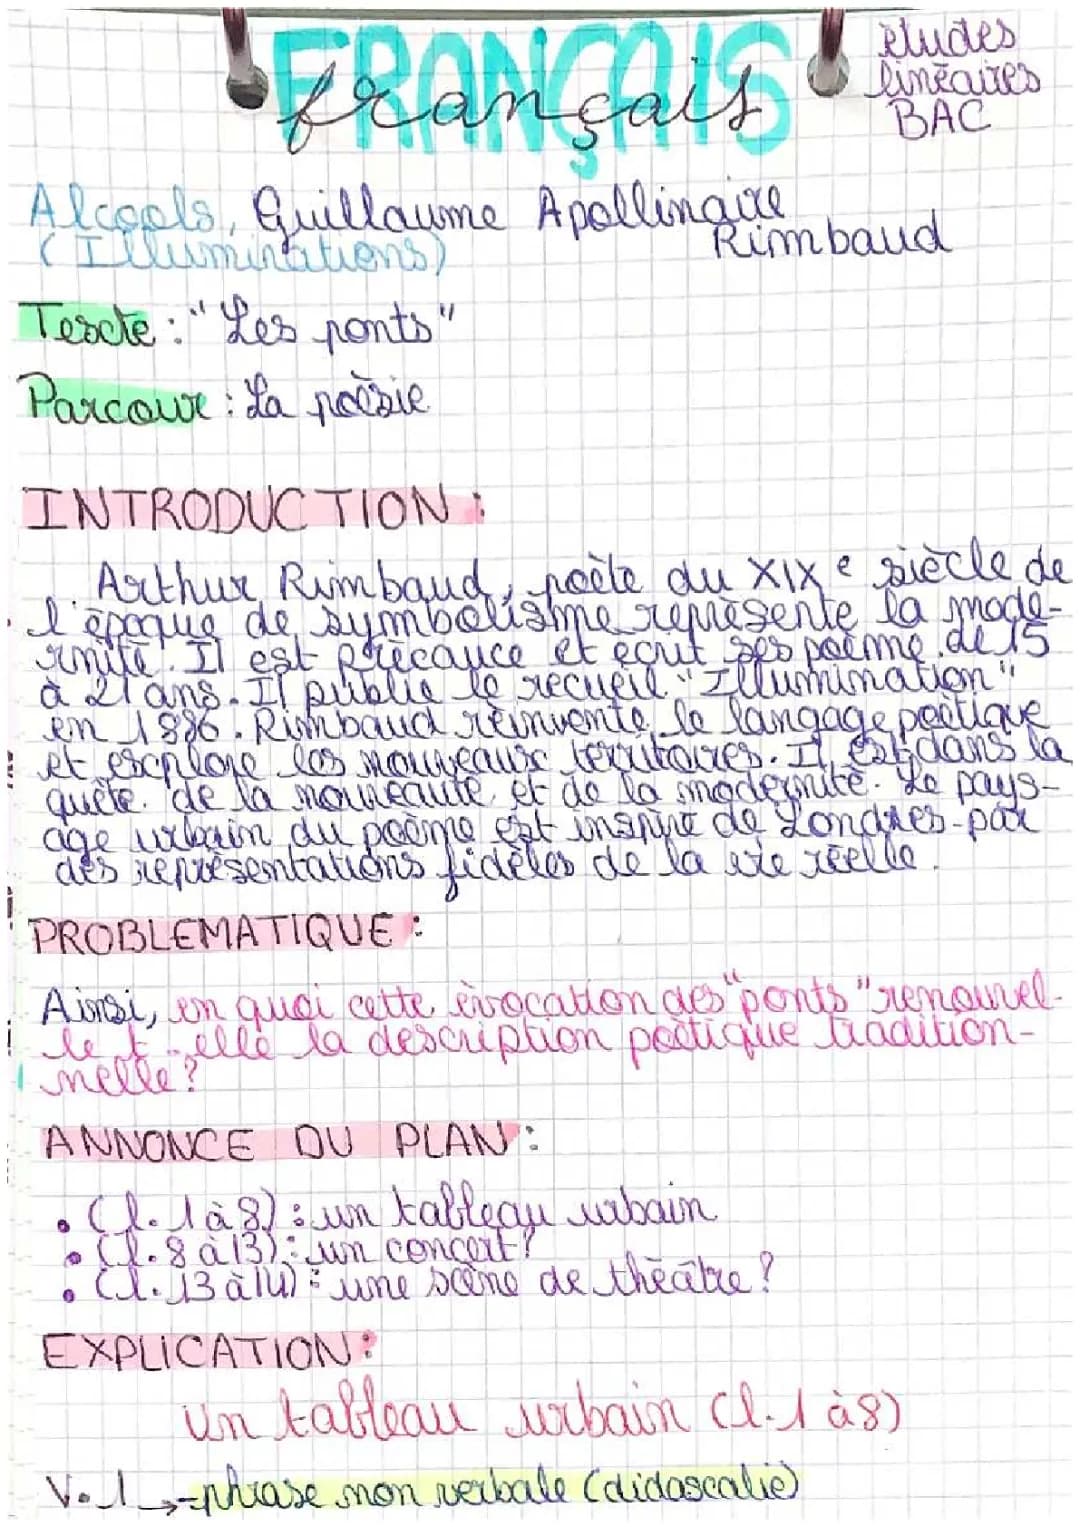 FRANÇAIS
français
études
linéaires
BAC
Alcools, Guillaume Apollinaire
(Illuminations) Rimbaud
Texte : "Les ponts"
Parcour : La poésie
INTRODUCTION :
Arthur Rimbaud, poète du XIXe siècle de
l'époque de symbolisme représente la mode-
rnité. Il est précauce et écrit ses poème de 15
à 21 ans. Il publie le recueil "Illumination"
en 1886. Rimbaud réinvente le langage poétique
et explore les nouveaux territoires. Il est dans la
quête de la nouveauté et de la modernité. Le pays-
age urbain du poème est inspiré de Londres par
des représentations fidèles de la vie réelle.
PROBLEMATIQUE :
Ainsi, en quoi cette évocation des "ponts" renouvel-
le t-elle la description poétique tradition-
nelle ?
ANNONCE DU PLAN :
• (l. 1 à 8) : un tableau urbain
• (l. 8 à 13) : un concert ?
• (l. 13 à 14) : une scène de théâtre ?
EXPLICATION :
Un tableau urbain (l. 1 à 8)
V. 1 → - phrase non verbale (didascalie)